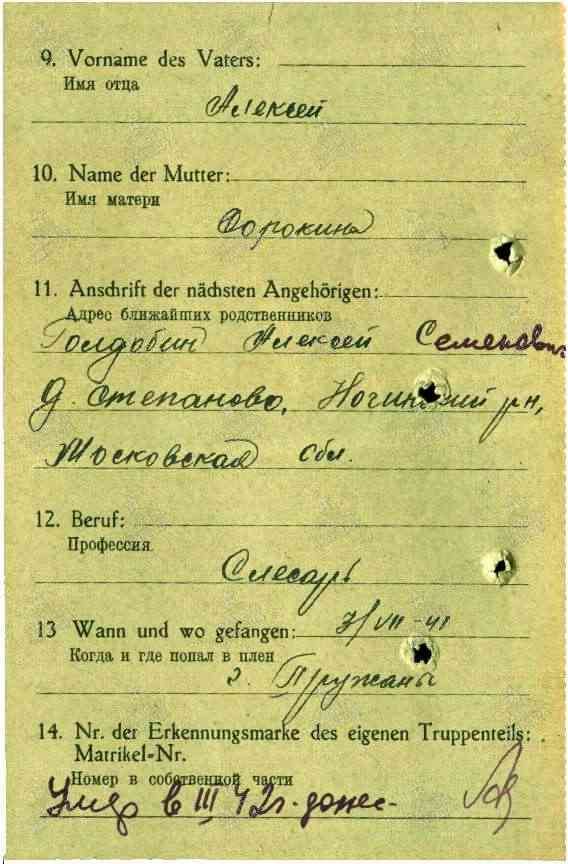 9. Vorname des Vaters:
Имя отца
Алексей
10. Name der Mutter:
Имя матери
Сорокина
11. Anschrift der nächsten Angehörigen:
Адрес ближайших родственников
Голдобин Алексей Семенович
д. Степаново, Ногинский рн,
Московская обл.
12. Beruf:
Профессия
Слесарь
13 Wann und wo gefangen:
/VIII-41
Когда и где попал в плен
г. Пружаны
14. Nr. der Erkennungsmarke des eigenen Truppenteils:
Matrikel-Nr.
Номер в собственной части
Умер в III 42г. донес-